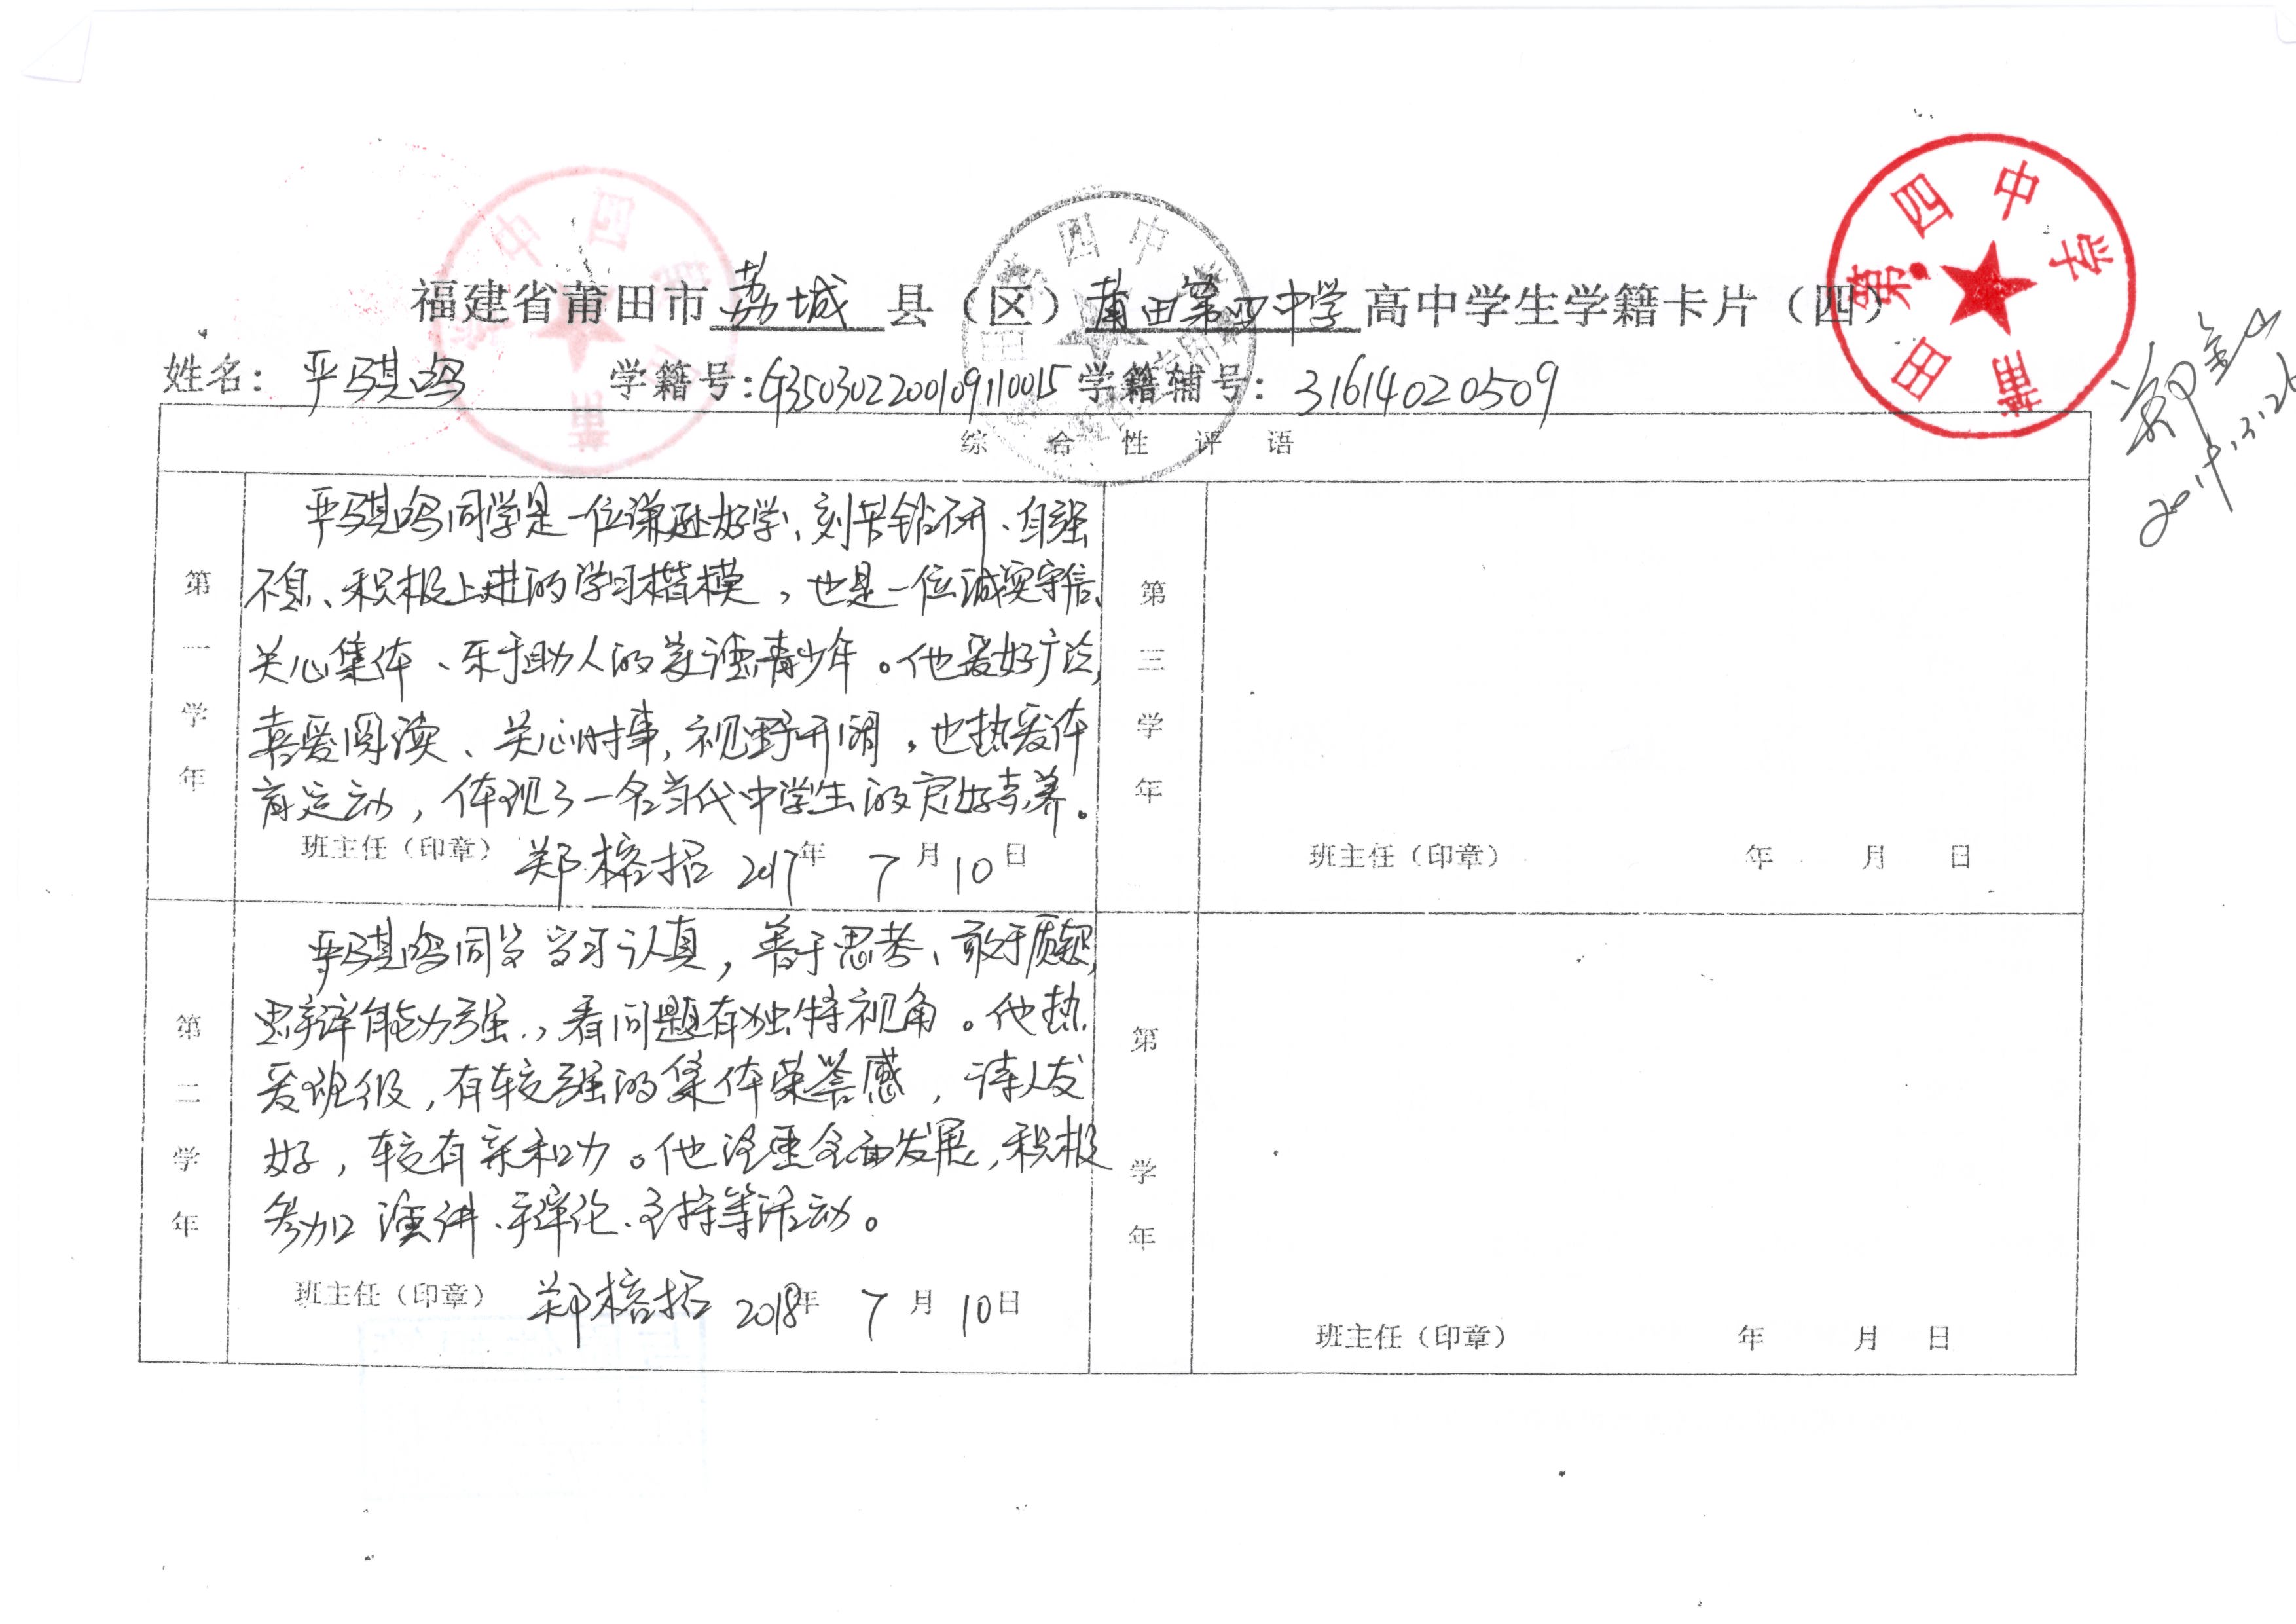 福建省莆田市荔城县（区）莆田第四中学高中学生学籍卡片（四）
姓名：严骐鸣 学籍号：G350302200109110015 学籍辅号：31614020509
综合性评语
第一学年
严骐鸣同学是一位谦逊好学、刻苦钻研、自强
不息、积极上进的学习楷模，也是一位诚实守信、
关心集体、乐于助人的美德青少年。他爱好广泛，
喜爱阅读、关心时事，视野开阔，也热爱体
育运动，体现了一名当代中学生的良好素养。
班主任（印章） 郑榕招 2017年 7月10日
第二学年
严骐鸣同学学习认真，善于思考、敢于质疑，
思辩能力强，看问题有独特视角。他热
爱班级，有较强的集体荣誉感，待人友
好，较有亲和力。他注重全面发展，积极
参加演讲、辩论、主持等活动。
班主任（印章） 郑榕招 2018年 7月10日
第三学年
班主任（印章） 年 月 日
第 学年
班主任（印章） 年 月 日
莆田第四中学
莆田第四中学